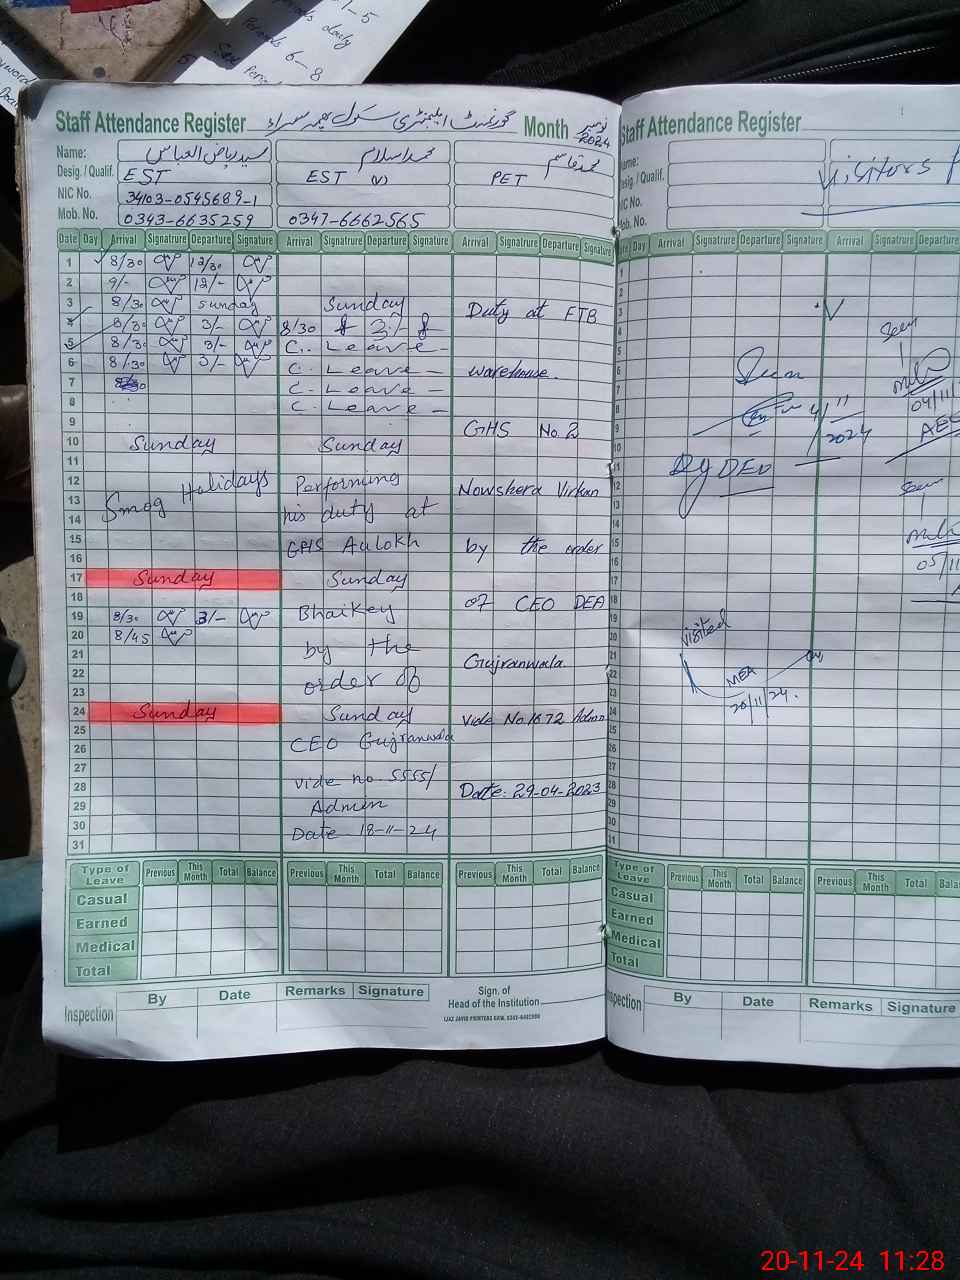 1-5
Periods daily
6-8
Staff Attendance Register گورنمنٹ ایلیمنٹری سکول Month نومبر 2024
Name: سید ریاض العباس محمد اسلام محمد قاسم
Desig. / Qualif. EST EST (V) PET
NIC No. 34103-0545689-1
Mob. No. 0343-6635259 0347-6662565
Date Day Arrival Signatrure Departure Signature Arrival Signatrure Departure Signature Arrival Signatrure Departure Signature
1 8/30 12/30
2 9/- 12/-
3 8/30 Sunday Sunday Duty at FTB
4 8/30 3/- 8/30 3/-
5 8/30 3/- C. Leave -
6 8/30 3/- C. Leave - warehouse.
7 C. Leave -
8 C. Leave -
9 GHS No. 2
10 Sunday Sunday
11
12 Smog Holidays Performing Nowshera Virkan
13 his duty at
14
15 GHS Aulokh by the order
16
17 Sunday Sunday
18 of CEO DEA
19 8/30 3/- Bhaikey
20 8/45
21 by the Gujranwala
22 order of
23
24 Sunday Sunday Vide No. 1672 Admn
25 CEO Gujranwala
26
27 vide no. 5555/
28 Date: 29-04-2023
29 Admin
30 Date 18-11-24
31
Type of Leave Previous This Month Total Balance Previous This Month Total Balance Previous This Month Total Balance
Casual
Earned
Medical
Total
Inspection By Date Remarks Signature Sign. of Head of the Institution
IJAZ JAVID PRINTERS GRW.
Staff Attendance Register
Name: Visitors
Desig. / Qualif.
NIC No.
Mob. No.
Date Day Arrival Signatrure Departure Signature Arrival Signatrure Departure
1
2
3
5 Seen
6 Seen
7
8 04/11
9 4/11/2024
10 AEO
11 Dy DEO
12 Seen
13
14
15
16 05/11
17
18
19
20 Visited
21
22 MEA
23 20/11/24.
24
25
26
27
28
29
30
31
Type of Leave Previous This Month Total Balance Previous This Month Total
Casual
Earned
Medical
Total
Inspection By Date Remarks Signature
20-11-24 11:28